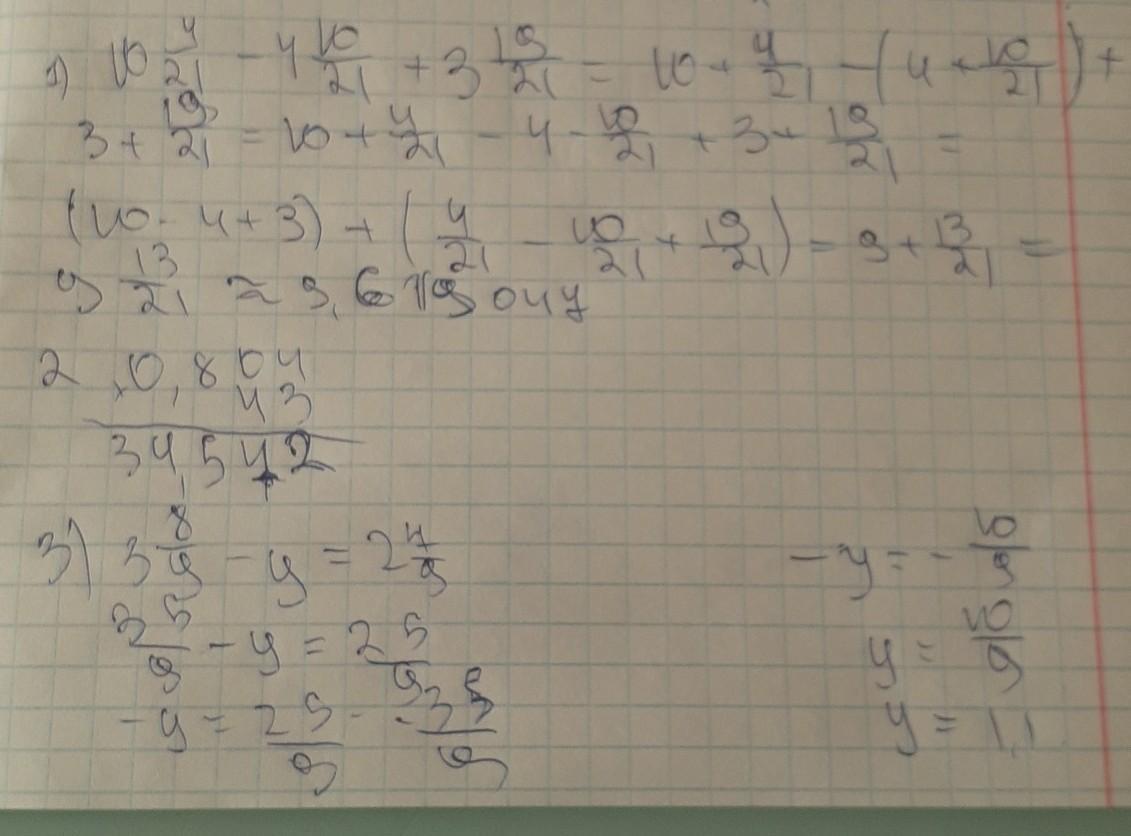 1) 10 4/21 - 4 10/21 + 3 19/21 = 10 + 4/21 - (4 + 10/21) +
3 + 19/21 = 10 + 4/21 - 4 - 10/21 + 3 + 19/21 =
(10 - 4 + 3) + (4/21 - 10/21 + 19/21) = 9 + 13/21 =
9 13/21 ≈ 9,619
2 0,804
43
34,542
3) 3 8/9 - y = 2 7/9
35/9 - y = 25/9
-y = 25/9 - 35/9
-y = - 10/9
y = 10/9
y = 1,1